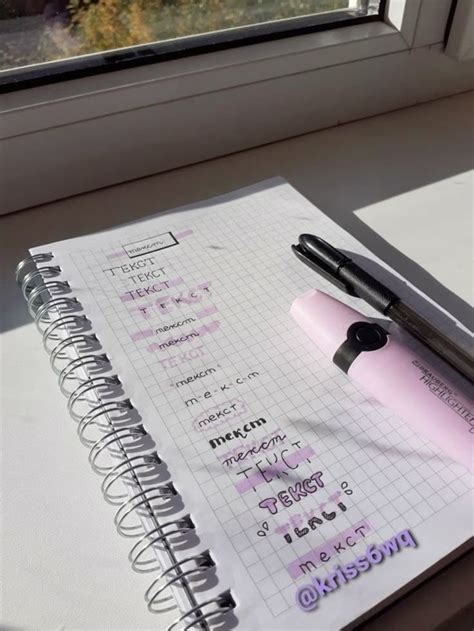 текст
ТЕКСТ
ТЕКСТ
ТЕКСТ
ТЕКСТ
ТЕКСТ
текст
текст
ТЕКСТ
текст
т-е-к-с-т
текст
текст
текст
ТЕКСТ
ТЕКСТ
ТЕКСТ
текст
@kriss6wq
HIGHLIGHTER